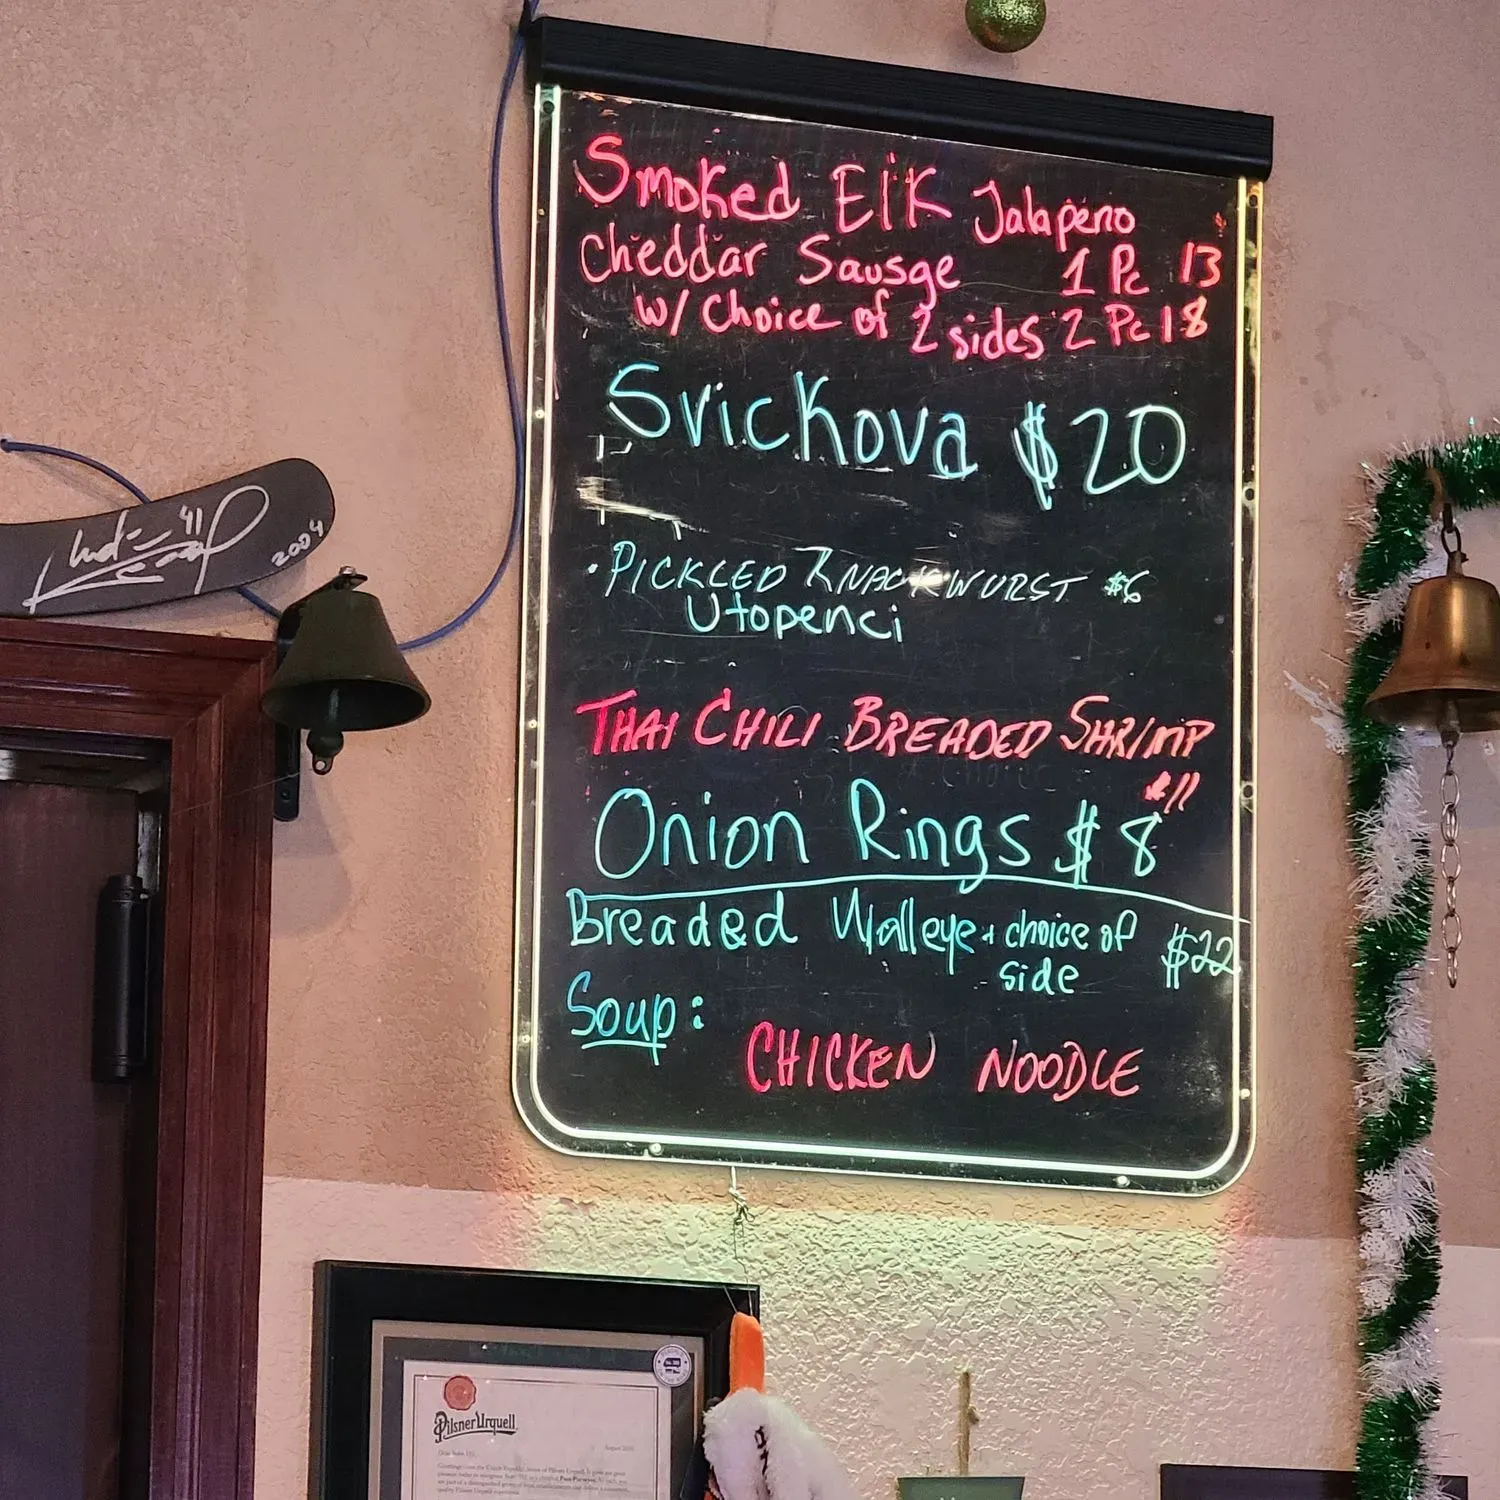 Smoked Elk Jalapeno
Cheddar Sausge 1 Pc 13
w/ Choice of 2 sides 2 Pc 18
Svickova $20
• PICKLED KNACKWURST $6
Utopenci
THAI CHILI BREADED SHRIMP
$11
Onion Rings $8
Breaded Walleye + choice of $22
side
Soup:
CHICKEN NOODLE
41
2004
Pilsner Urquell